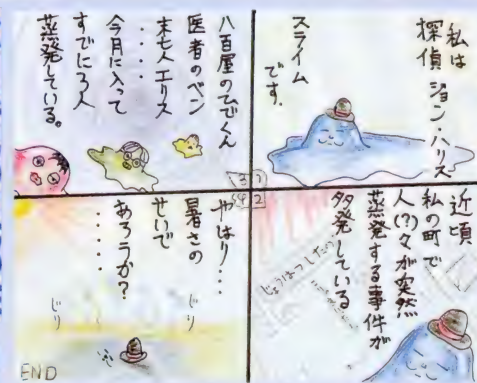 私は
探偵 ジョン・ハリス
スライム
です.
1
近頃
私の町で
人(?)々が突然
蒸発する事件が
多発している
2
八百屋のひでくん
医者のベン
未亡人エリス
・・・・
今月に入って
すでに3人
蒸発している。
3
やはり・・・
暑さの
せいで
あろうか?
・・・・・
じり
じり
4
END